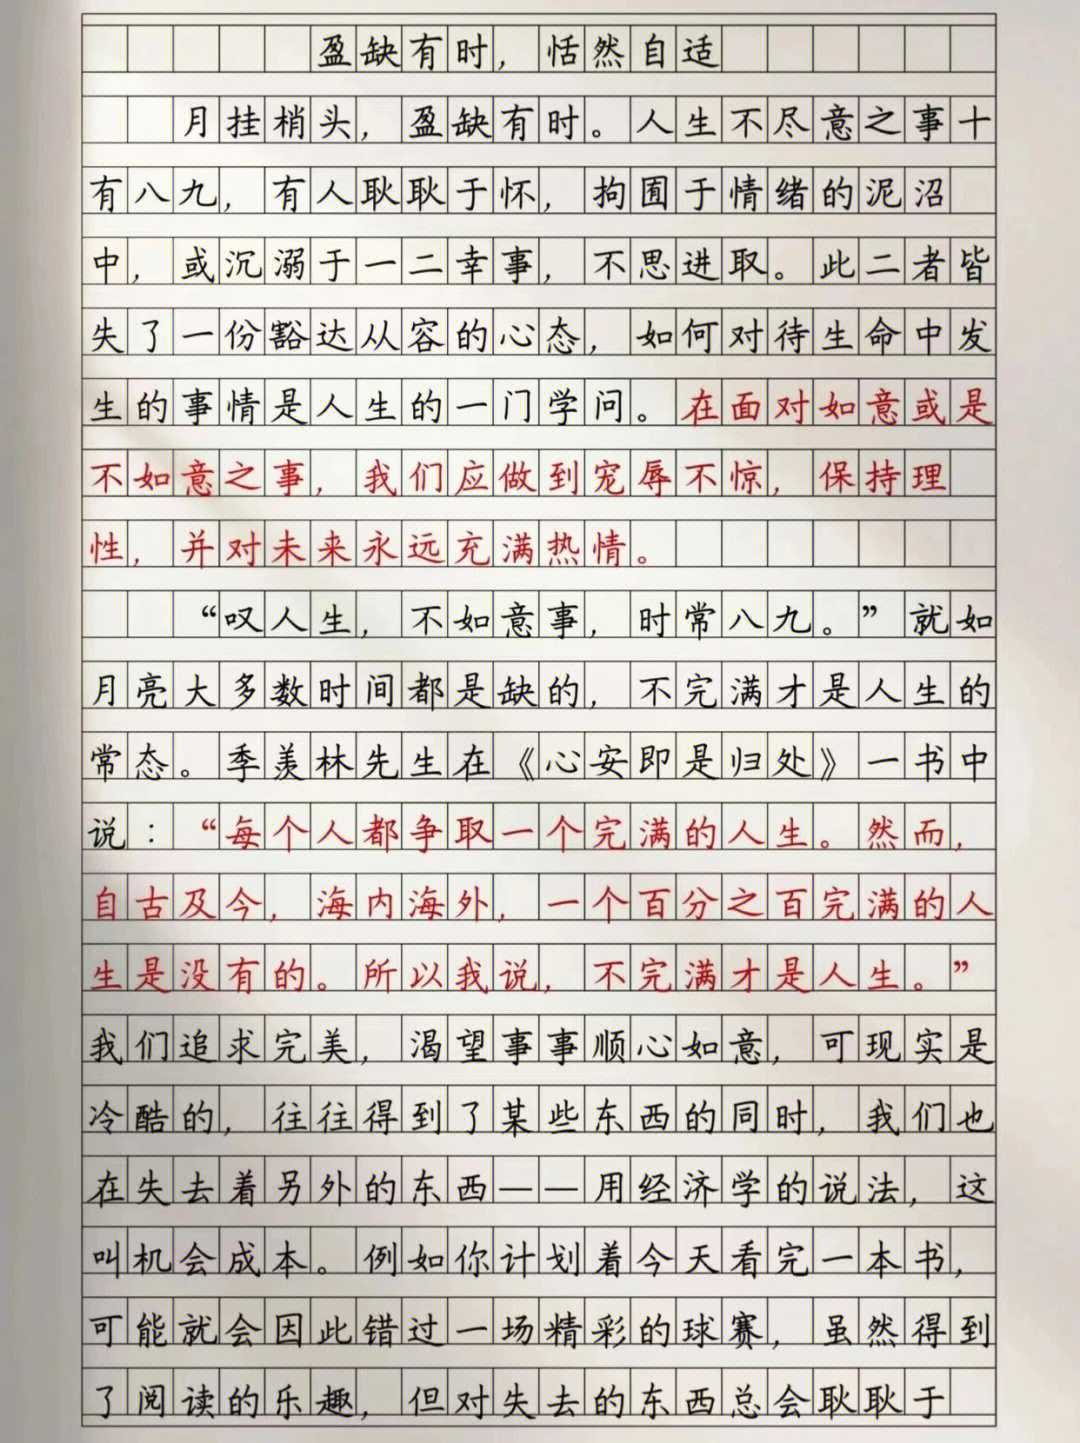 盈缺有时，恬然自适
月挂梢头，盈缺有时。人生不尽意之事十
有八九，有人耿耿于怀，拘囿于情绪的泥沼
中，或沉溺于一二幸事，不思进取。此二者皆
失了一份豁达从容的心态，如何对待生命中发
生的事情是人生的一门学问。在面对如意或是
不如意之事，我们应做到宠辱不惊，保持理
性，并对未来永远充满热情。
“叹人生，不如意事，时常八九。”就如
月亮大多数时间都是缺的，不完满才是人生的
常态。季羡林先生在《心安即是归处》一书中
说：“每个人都争取一个完满的人生。然而，
自古及今，海内海外，一个百分之百完满的人
生是没有的。所以我说，不完满才是人生。”
我们追求完美，渴望事事顺心如意，可现实是
冷酷的，往往得到了某些东西的同时，我们也
在失去着另外的东西——用经济学的说法，这
叫机会成本。例如你计划着今天看完一本书，
可能就会因此错过一场精彩的球赛，虽然得到
了阅读的乐趣，但对失去的东西总会耿耿于